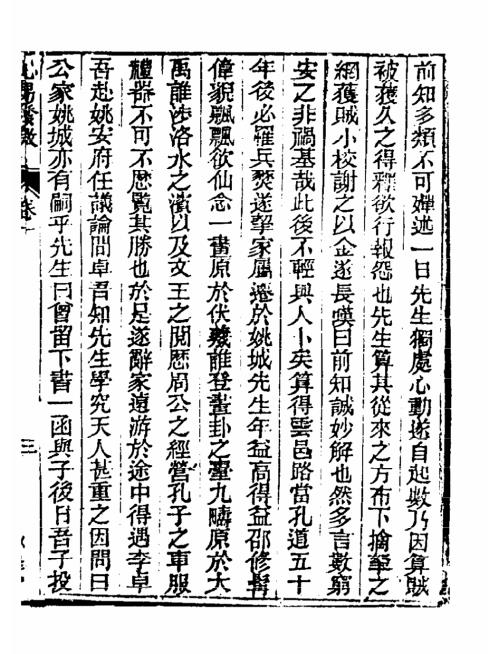 前知多類不可殫述一日先生獨處心動遂自起數乃因算賊
被獲久之得釋欲行報怨也先生算其從來之方布下擒拏之
網獲賊小校謝之以金遂長嘆曰前知誠妙解也然多言數窮
安之非禍基哉此後不輕與人卜矣算得雲邑路當孔道五十
年後必罹兵燹遂挈家屬遷於姚城先生年益高得益邵修髯
偉貌飄飄欲仙念一畫原於伏羲誰登畫卦之臺九疇原於大
禹誰涉洛水之濱以及文王之閱歷周公之經營孔子之車服
禮器不可不歷覧其勝也於是遂辭家遠游於途中得遇李卓
吾赴姚安府任議論間卓吾知先生學究天人甚重之因問曰
公家姚城亦有嗣乎先生曰曾留下書一函與子後日吾子投
心易發微 卷 三